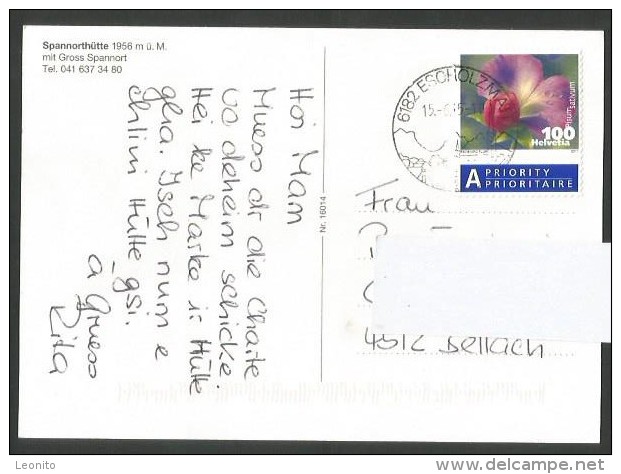 Spannorthütte 1956 m ü. M.
mit Gross Spannort
Tel. 041 637 34 80
Hoi Mam
Muess dr die Charte
vo deheim schicke.
Hei ke Marke ir Hütte
gha. Isch numme e
chlini Hütte gsi.
ä Gruess
Rita
Nr. 16014
6182 ESCHOLZMA
Pisum sativum
100
Helvetia
A PRIORITY
PRIORITAIRE
Frau
4512 Bellach
Leonito
www.delcampe.net